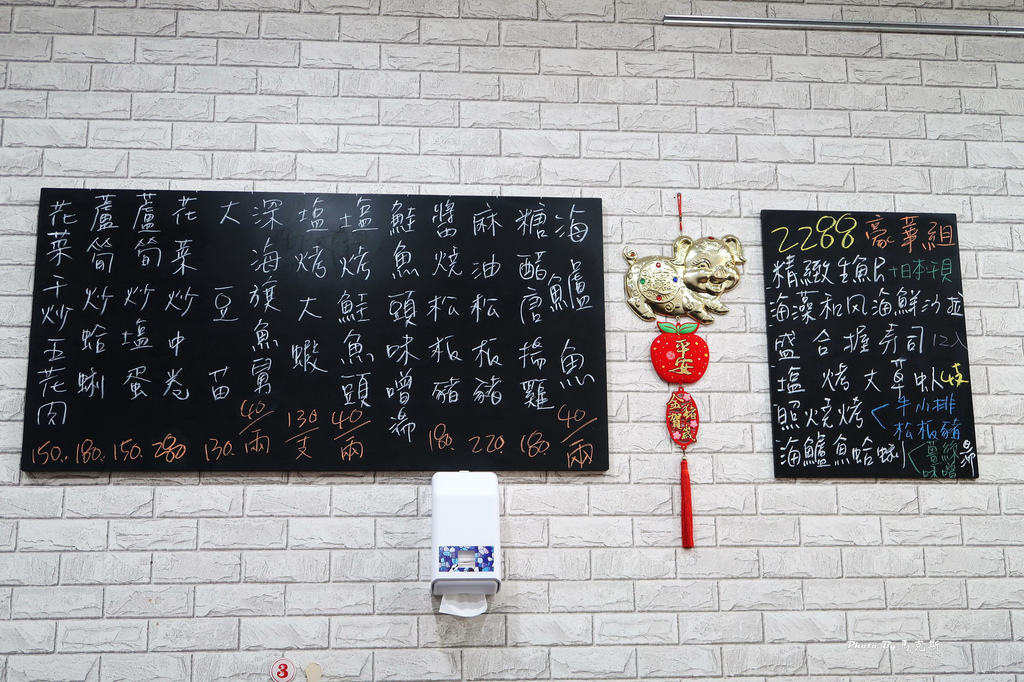 海鱸魚 40/兩
糖醋唐揚雞 180.
麻油松板豬 220.
醬燒松板豬 180.
鮭魚頭味噌湯
塩烤鮭魚頭 40/兩
塩烤大蝦 130/支
深海旗魚舅 40/兩
大豆苗 130.
花菜炒中卷 280
蘆筍炒塩蛋 150.
蘆筍炒蛤蜊 180.
花菜干炒五花肉 150.
平安
2288 豪華組
精緻生魚片+日本干貝
海藻和風海鮮沙拉
盛合握壽司12入
塩烤大草虾4支
照燒烤<牛小排
松板豬
海鱸魚蛤蜊<薑絲
味噌
湯
3
Photo By